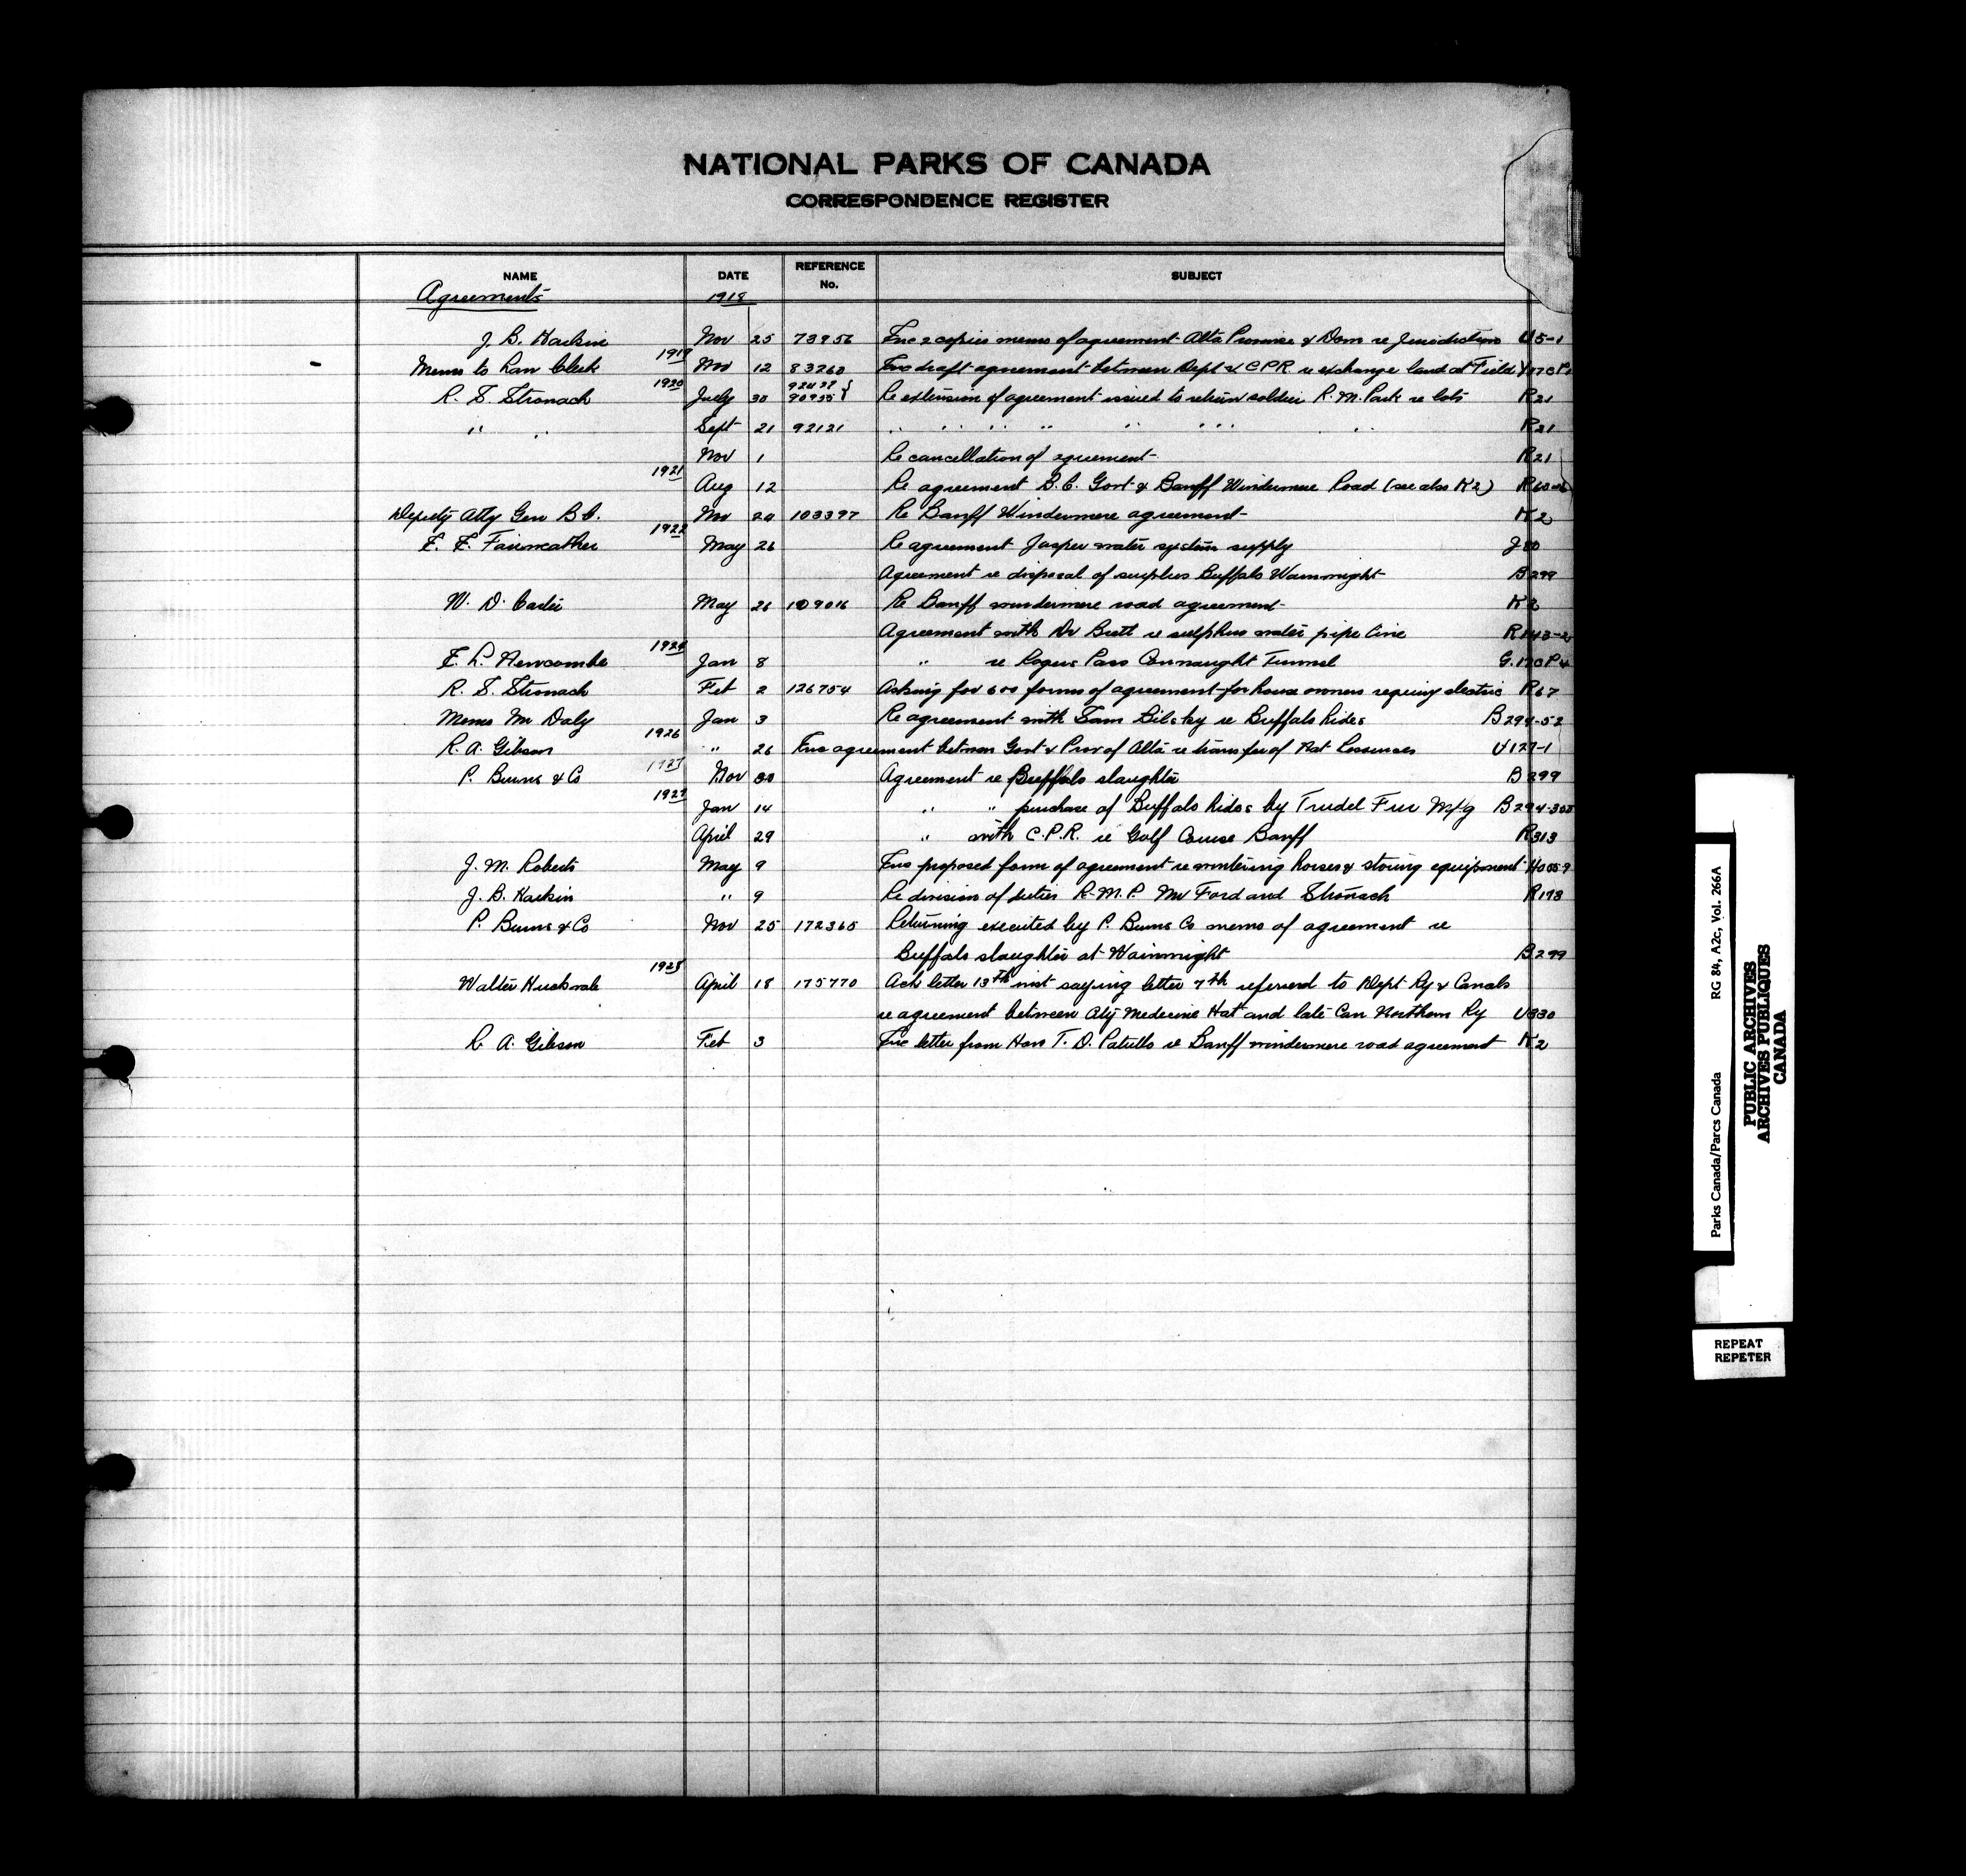 NATIONAL PARKS OF CANADA
CORRESPONDENCE REGISTER
NAME DATE REFERENCE No. SUBJECT
Agreements 1918
J. B. Harkin Nov 25 73956 Enc 2 copies memo of agreement Alta Province & Dom re Jurisdiction U5-1
1919
Memo to Law Clerk Nov 12 83260 Enc draft agreement between Dept & C.P.R. re exchange land at Field
1920
R. S. Stronach July 30 90955 } Re extension of agreement issued to return soldier R. M. Park re lots R21
" " Sept 21 92121 " " " " " " " R21
Nov 1 Re cancellation of agreement R21
1921
Aug 12 Re agreement B.C. Govt & Banff Windermere Road (see also K2)
Deputy Atty Gen B.C. Nov 20 103397 Re Banff Windermere agreement K2
1922
E. E. Fairweather May 26 Re agreement Jasper water system supply
Agreement re disposal of surplus Buffalo Wainwright B299
W. D. Carter May 26 109016 Re Banff windermere road agreement K2
Agreement with Dr Brett re sulphur water pipe line R143-2
E. L. Newcombe Jan 8 " re Rogers Pass Connaught Tunnel G.170P4
R. S. Stronach Feb 2 126754 Asking for 600 forms of agreement for house owners reqring electric R67
Memo Mr Daly Jan 3 Re agreement with Sam Bilsky re Buffalo hides B294-52
1926
R. A. Gibson " 26 Enc agreement between Govt & Prov of Alta re transfer of Nat Resources U127-1
1927
P. Burns & Co Nov 30 Agreement re Buffalo slaughter B299
1927
Jan 14 " " purchase of Buffalo hides by Trudel Fur Mfg B294-
April 29 " with C.P.R. re Golf Course Banff R313
J. M. Roberts May 9 Enc proposed form of agreement re wintering horses & storing equipment
J. B. Harkin " 9 Re division of duties R.M.P. Mr Ford and Stronach R193
P. Burns & Co Nov 25 172365 Returning executed by P. Burns Co memo of agreement re
Buffalo slaughter at Wainwright B299
1928
Walter Huckvale April 18 175770 Ack letter 13th inst saying letter 7th referred to Dept Ry & Canals
re agreement between City Medecine Hat and late Can Northern Ry U330
R. A. Gibson Feb 3 Enc letter from Hon T. D. Patullo re Banff windermere road agreement K2
Parks Canada/Parcs Canada RG 84, A2c, Vol. 266A
PUBLIC ARCHIVES
ARCHIVES PUBLIQUES
CANADA
REPEAT
REPETER